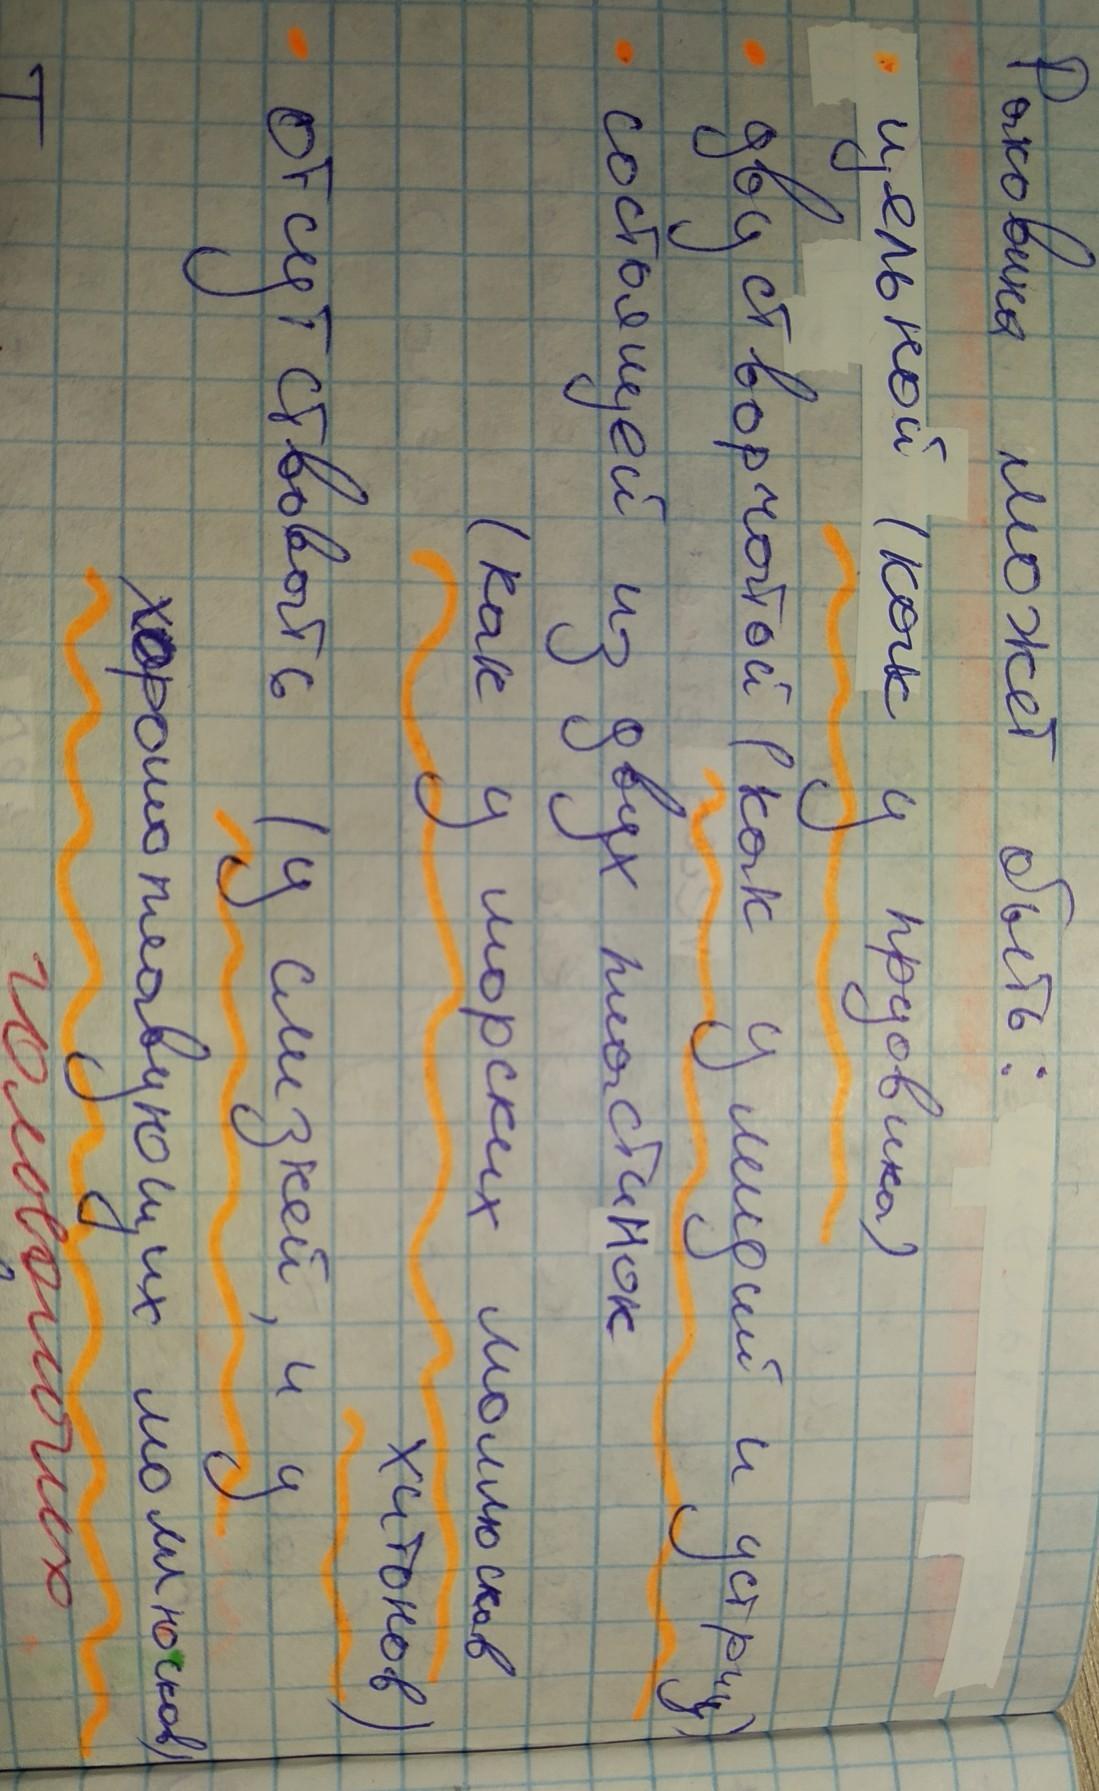 Раковина может быть:
• цельной (как у прудовика)
• двустворчатой (как у мидий и устриц)
• состоящей из двух пластинок
(как у морских моллюсков
хитонов)
• отсутствовать (у слизней, и у
хорошо плавующих моллюсков)
головоногих
Т